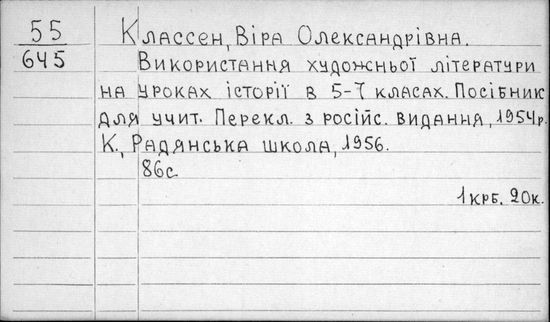 55
645
Классен, Віра Олександрівна.
Використання художньої літератури
на уроках історії в 5-7 класах. Посібник
для учит. Перекл. з російс. видання, 1954р.
К., Радянська школа, 1956.
86с.
1 крб. 20к.